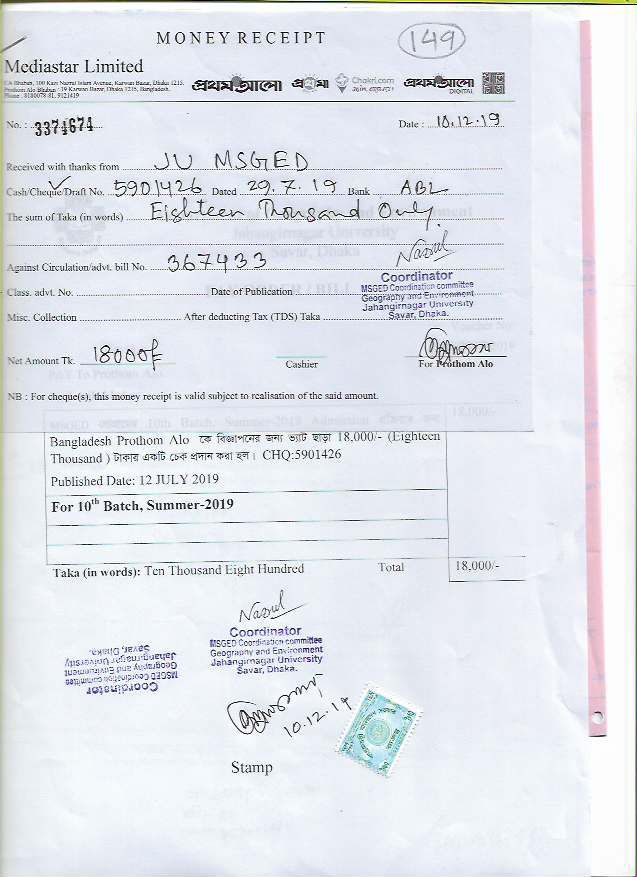 MONEY RECEIPT
149
Mediastar Limited
CA Bhaban, 100 Kazi Nazrul Islam Avenue, Karwan Bazar, Dhaka 1215.
Prothom Alo Bhaban : 19 Karwan Bazar, Dhaka 1215, Bangladesh.
Phone : 8180078-81, 9121419
প্রথম আলো Chakri.com প্রথম আলো DIGITAL
No. : 3374674 Date : 10.12.19
Received with thanks from JU MSGED
Cash/Cheque/Draft No. 5901426 Dated 29.7.19 Bank ABL
The sum of Taka (in words) Eighteen Thousand Only.
Jahangirnagar University
Savar, Dhaka
Against Circulation/advt. bill No. 367433
Coordinator
MSGED Coordination committee
Geography and Environment
Jahangirnagar University
Savar, Dhaka.
Class. advt. No. Date of Publication
Misc. Collection After deducting Tax (TDS) Taka
Net Amount Tk. 18000/- Cashier For Prothom Alo
NB : For cheque(s), this money receipt is valid subject to realisation of the said amount.
18,000/-
Bangladesh Prothom Alo কে বিজ্ঞাপনের জন্য ভ্যাট ছাড়া 18,000/- (Eighteen
Thousand ) টাকার একটি চেক প্রদান করা হল। CHQ:5901426
Published Date: 12 JULY 2019
For 10th Batch, Summer-2019
Taka (in words): Ten Thousand Eight Hundred Total 18,000/-
Coordinator
MSGED Coordination committee
Geography and Environment
Jahangirnagar University
Savar, Dhaka.
Coordinator
MSGED Coordination committee
Geography and Environment
Jahangirnagar University
Savar, Dhaka.
10.12.19
Stamp